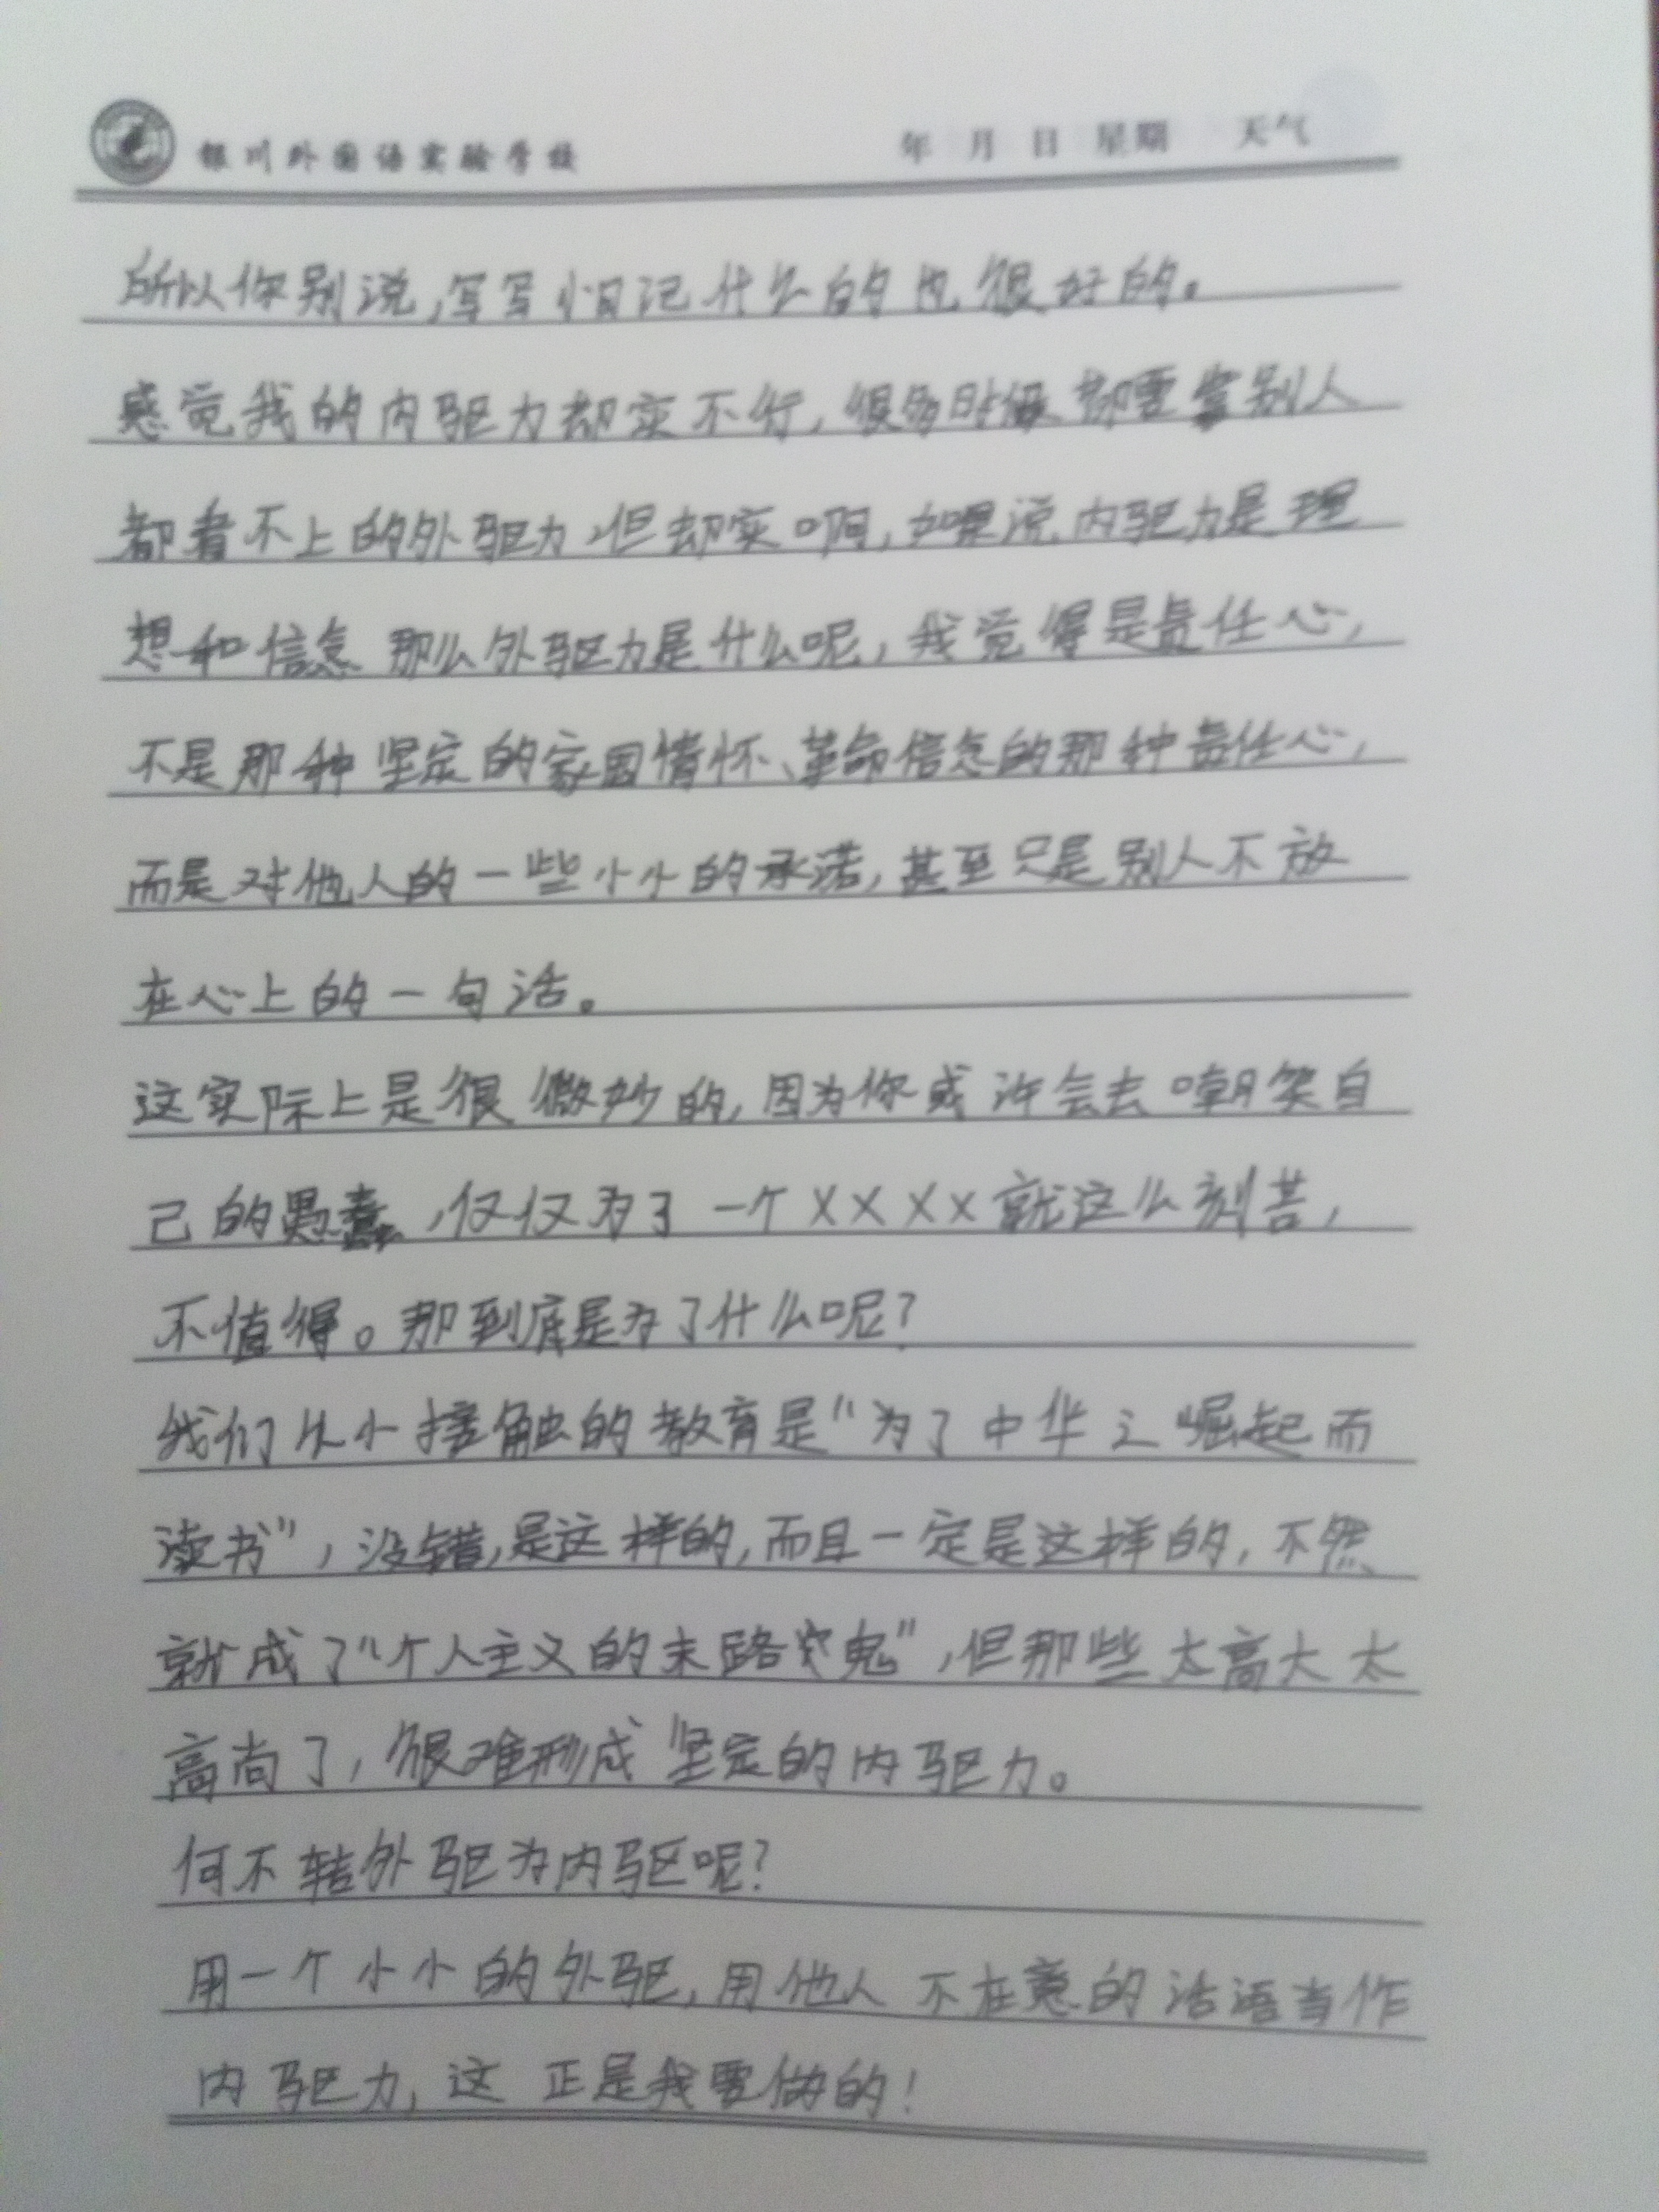 银川外国语实验学校 年 月 日 星期 天气
所以你别说,写写小日记什么的也很好的。
感觉我的内驱力却实不行,很多时候都要拿别人
都看不上的外驱力,但却实啊,如果说内驱力是理
想和信念 那么外驱力是什么呢,我觉得是责任心,
不是那种坚定的家国情怀、革命信念的那种责任心,
而是对他人的一些小小的承诺,甚至只是别人不放
在心上的一句话。
这实际上是很微妙的,因为你或许会去嘲笑自
己的愚蠢,仅仅为了一个××××就这么刻苦,
不值得。那到底是为了什么呢?
我们从小接触的教育是“为了中华之崛起而
读书”,没错,是这样的,而且一定是这样的,不然
就成了“个人主义的末路鬼”,但那些太高大太
高尚了,很难形成坚定的内驱力。
何不转外驱为内驱呢?
用一个小小的外驱,用他人不在意的话语当作
内驱力,这正是我要做的!